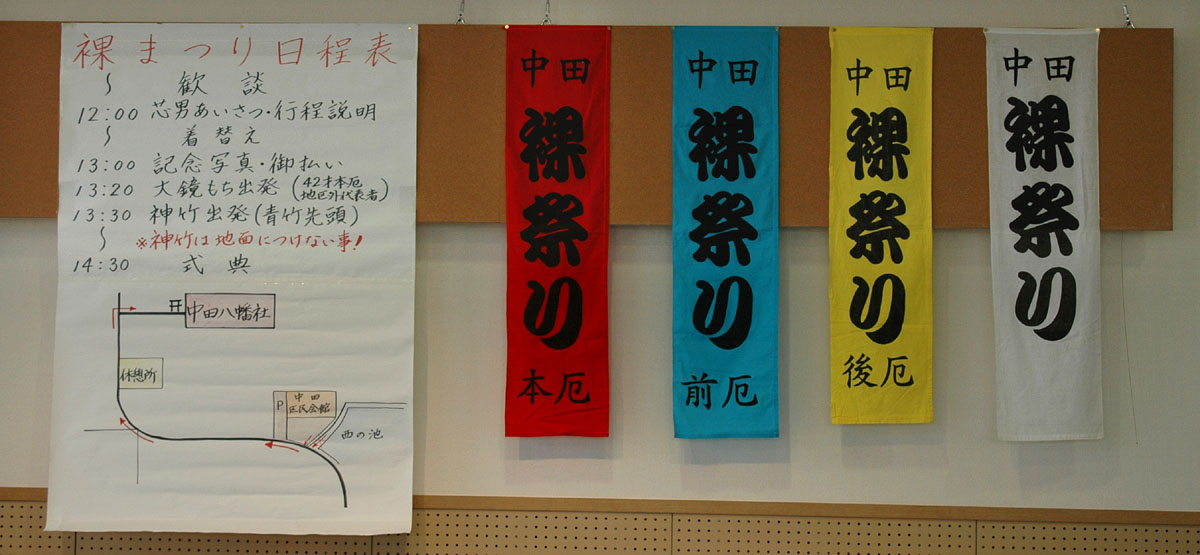 裸まつり日程表
〜 歓談
12:00 芯男あいさつ・行程説明
〜 着替え
13:00 記念写真・御払い
13:20 大鏡もち出発 (42才本厄
地区外代表者)
13:30 神竹出発(青竹先頭)
〜 ※神竹は地面につけない事!
14:30 式典
中田八幡社
休憩所
P
中田
区民会館
西の池
中田
裸祭り
本厄
中田
裸祭り
前厄
中田
裸祭り
後厄
中田
裸祭り